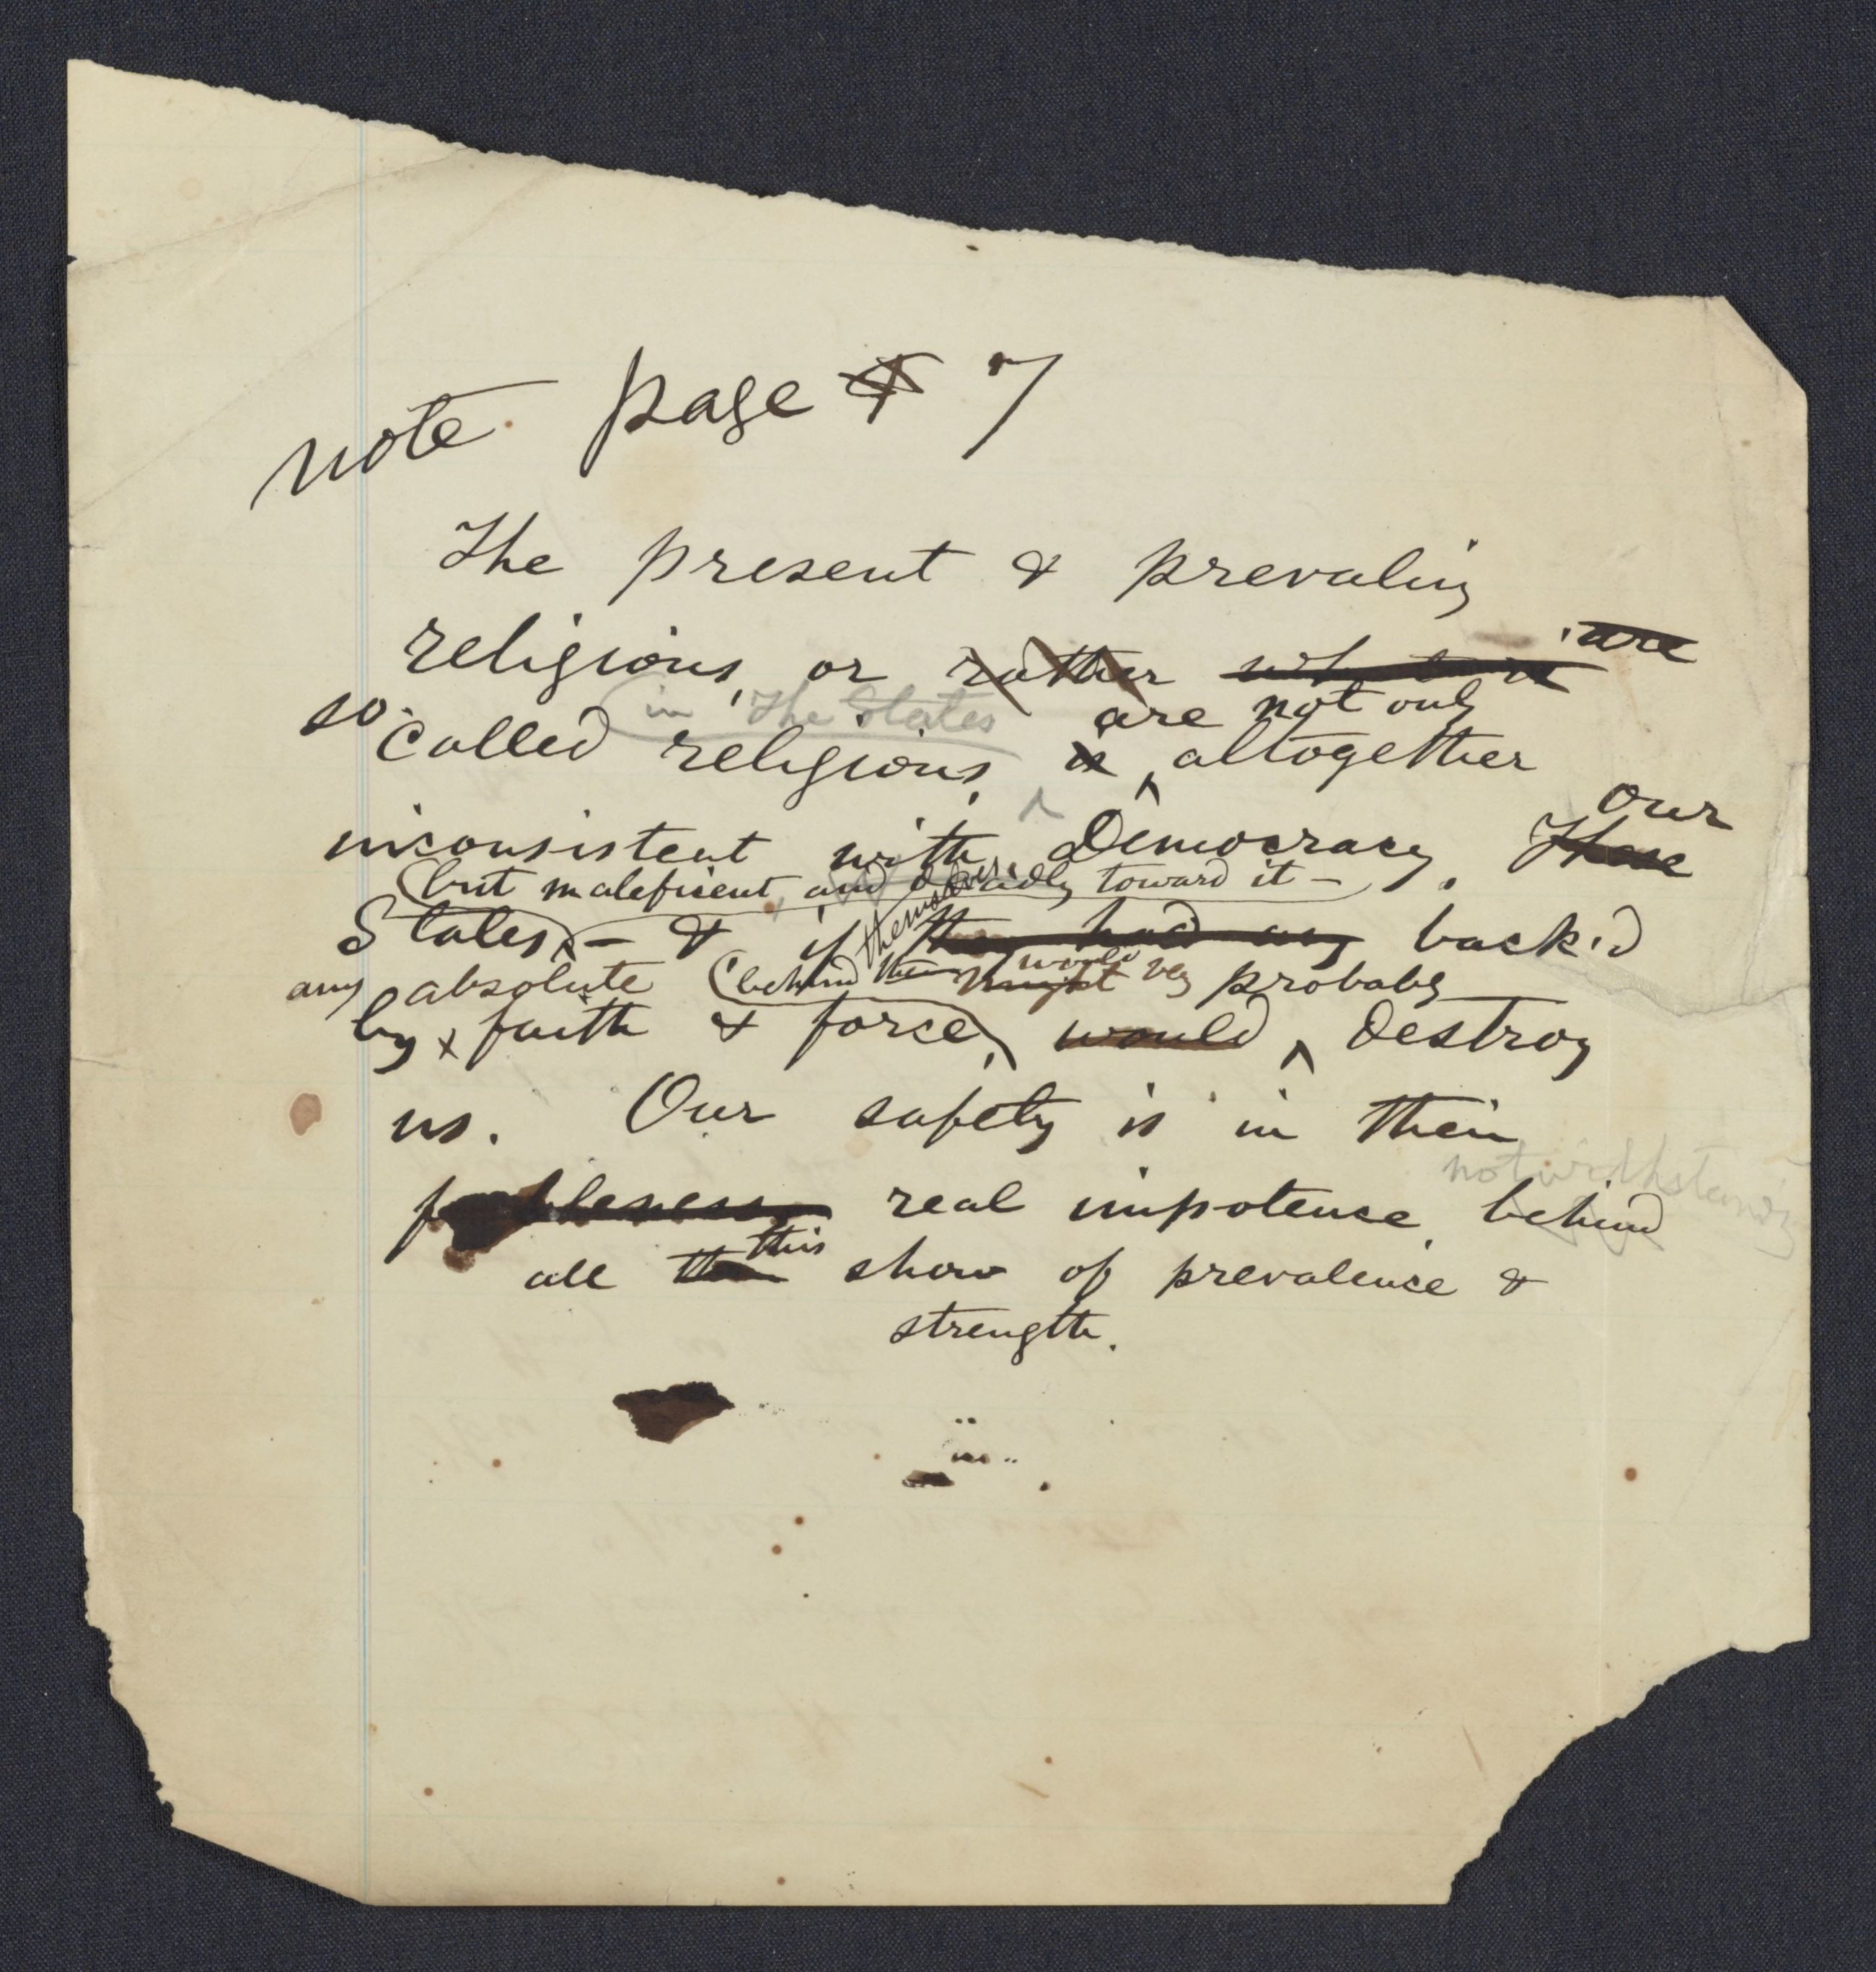 note page 7
The present & prevaling
religions, or rather what is are
in the States are not only
so called religions, is altogether
our
inconsistent with Democracy. These
(but maleficent, and deadly toward it –
States, – & if themselves they had any back'd
any absolute (behind them might would very probably
by faith & force, would destroy
us. Our safety is in their
notwithstanding
feebleness real impotence behind
this
all the show of prevalence &
strength.